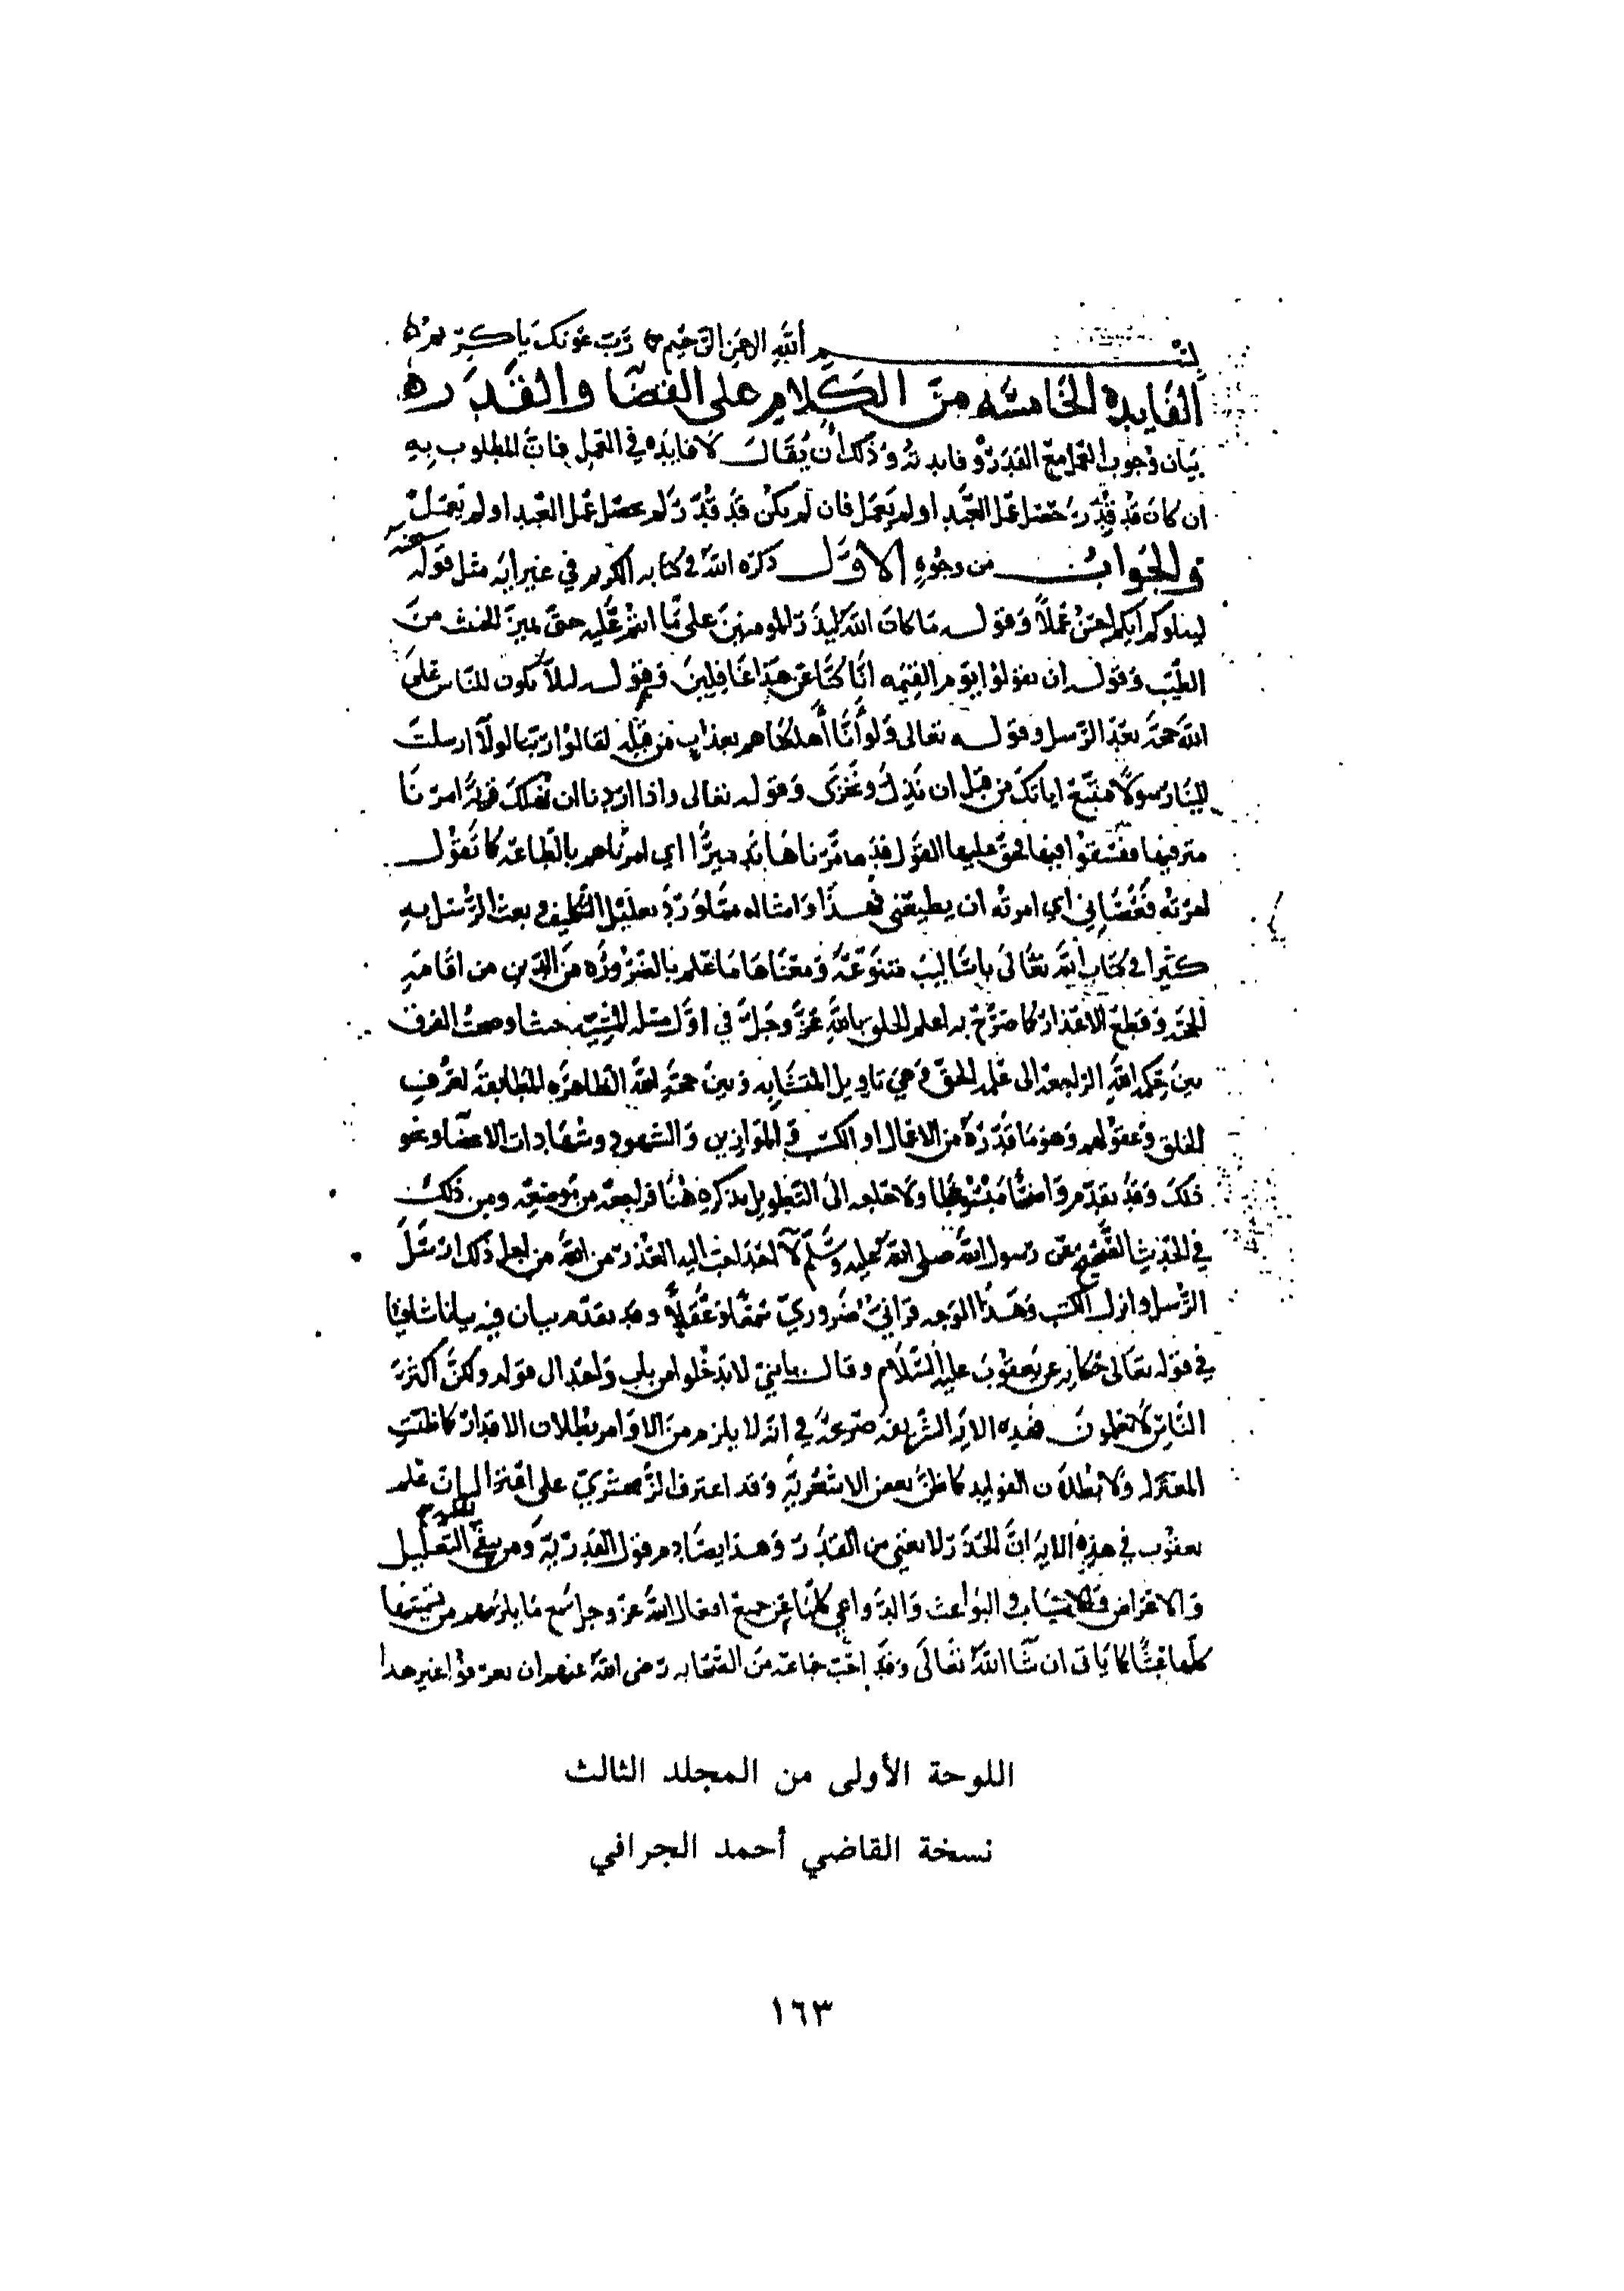 بسم الله الرحمن الرحيم رب عونك يا كريم
الفايده الخامسه من الكلام على القضا والقدر
بيان وجوب العمل مع القدر وفايدته وذلك أن يقال لا فايده في العمل فان المطلوب به
ان كان قد قدر حصل عمل العبد او لم يعمل فان لم يكن قد قدر لم يحصل عمل العبد او لم يعمل
والجواب من وجوه الاول ذكره الله في كتابه الكريم في غير ايه مثل قوله
ليبلوكم ايكم احسن عملا وقوله ما كان الله ليذر المومنين على ما انتم عليه حتى يميز الخبيث من
الطيب وقوله ان تقولوا يوم القيمه انا كنا عن هذا غافلين وقوله ليلا يكون للناس على
الله حجه بعد الرسل وقوله تعالى ولو أنا أهلكناهم بعذاب من قبله لقالوا ربنا لولا ارسلت
الينا رسولا فنتبع اياتك من قبل ان نذل ونخزى وقوله تعالى واذا اردنا ان نهلك قرية امرنا
مترفيها ففسقوا فيها فحق عليها القول فدمرناها تدميرا اي امرناهم بالطاعه كما تقول
امرته فعصاني اي امرته ان يطيعني فهذا وامثاله مما ورد تعليل التكليف وبعث الرسل به
كثيرا في كتاب الله تعالى باساليب متنوعة ومعناها ما علم بالضروره من الدين من اقامه
الحجه وقطع الاعذار كما صرح به اعلم الخلق بالله عز وجل في اول مسله المشيه حيث اوضحت الفرق
بين حكمه الله الراجعه الى علمه الحق وهي تاويل المتشابه وبين حجه الله الظاهره المطابقة لعرف
الخلق وعقولهم وهو ما قدره من الاعمال او الكتب والموازين والشهود وشهادات الاعضا ونحو
ذلك وقد تقدم واضحا مبسوطا ولا حاجه الى التطويل بذكره هنا فراجعه من موضعه ومن ذلك
في الحديث الصحيح عن رسول الله صلى الله عليه وسلم لا احد احب اليه العذر من الله من اجل ذلك ارسل
الرسل وانزل الكتب وهذا الوجه قراني ضروري سمعا وعقلا وقد تقدم بيان فيه بيانا شافيا
في قوله تعالى حكايه عن يعقوب عليه السلام وقال يا بني لا تدخلوا من باب واحد الى قوله ولكن أكثر
الناس لا يعلمون فهذه الايه الشريفه صريحة في انه لا يلزم من الاوامر بطلان الاقدار كما ظنت
المعتزله ولا بطلان الفوايد كما ظن بعض الاشعرية وقد اعترف الزمخشري على اعتزاله ان علم
يعقوب في هذه الايه ان الحذر لا يغني من القدر وهذا يصادم قول القدرية ومن ينفي التعليل
والاغراض والاسباب والبواعث والدواعي كلها عن جميع افعال الله عز وجل مع ما يلزمهم من تسميتها
كلها عبثا كما ياتي ان شا الله تعالى وقد احب جماعه من الصحابه رضى الله عنهم ان يعرفوا غير هذا
اللوحة الأولى من المجلد الثالث
نسخة القاضي أحمد الجرافي
١٦٣